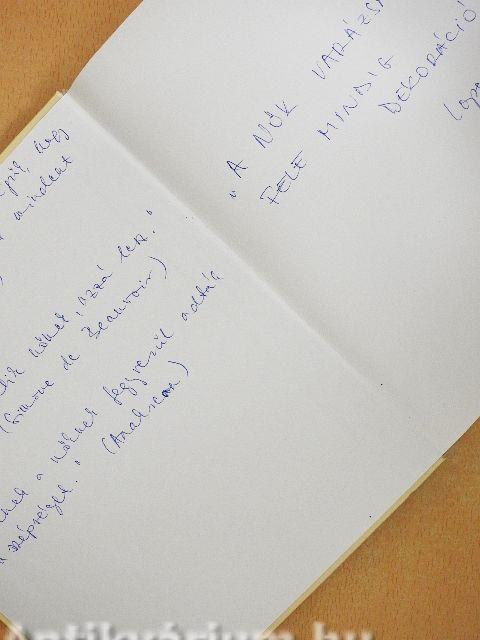 hogy
mindent
nőnek, azzá lesz."
(Simone de Beauvoir)
a nőknek fegyverül adták
szépséget." (Anakreon)
"A NŐK VARÁZSÁ
FELE MINDIG
DEKORÁCIÓ
Antikvárium.hu